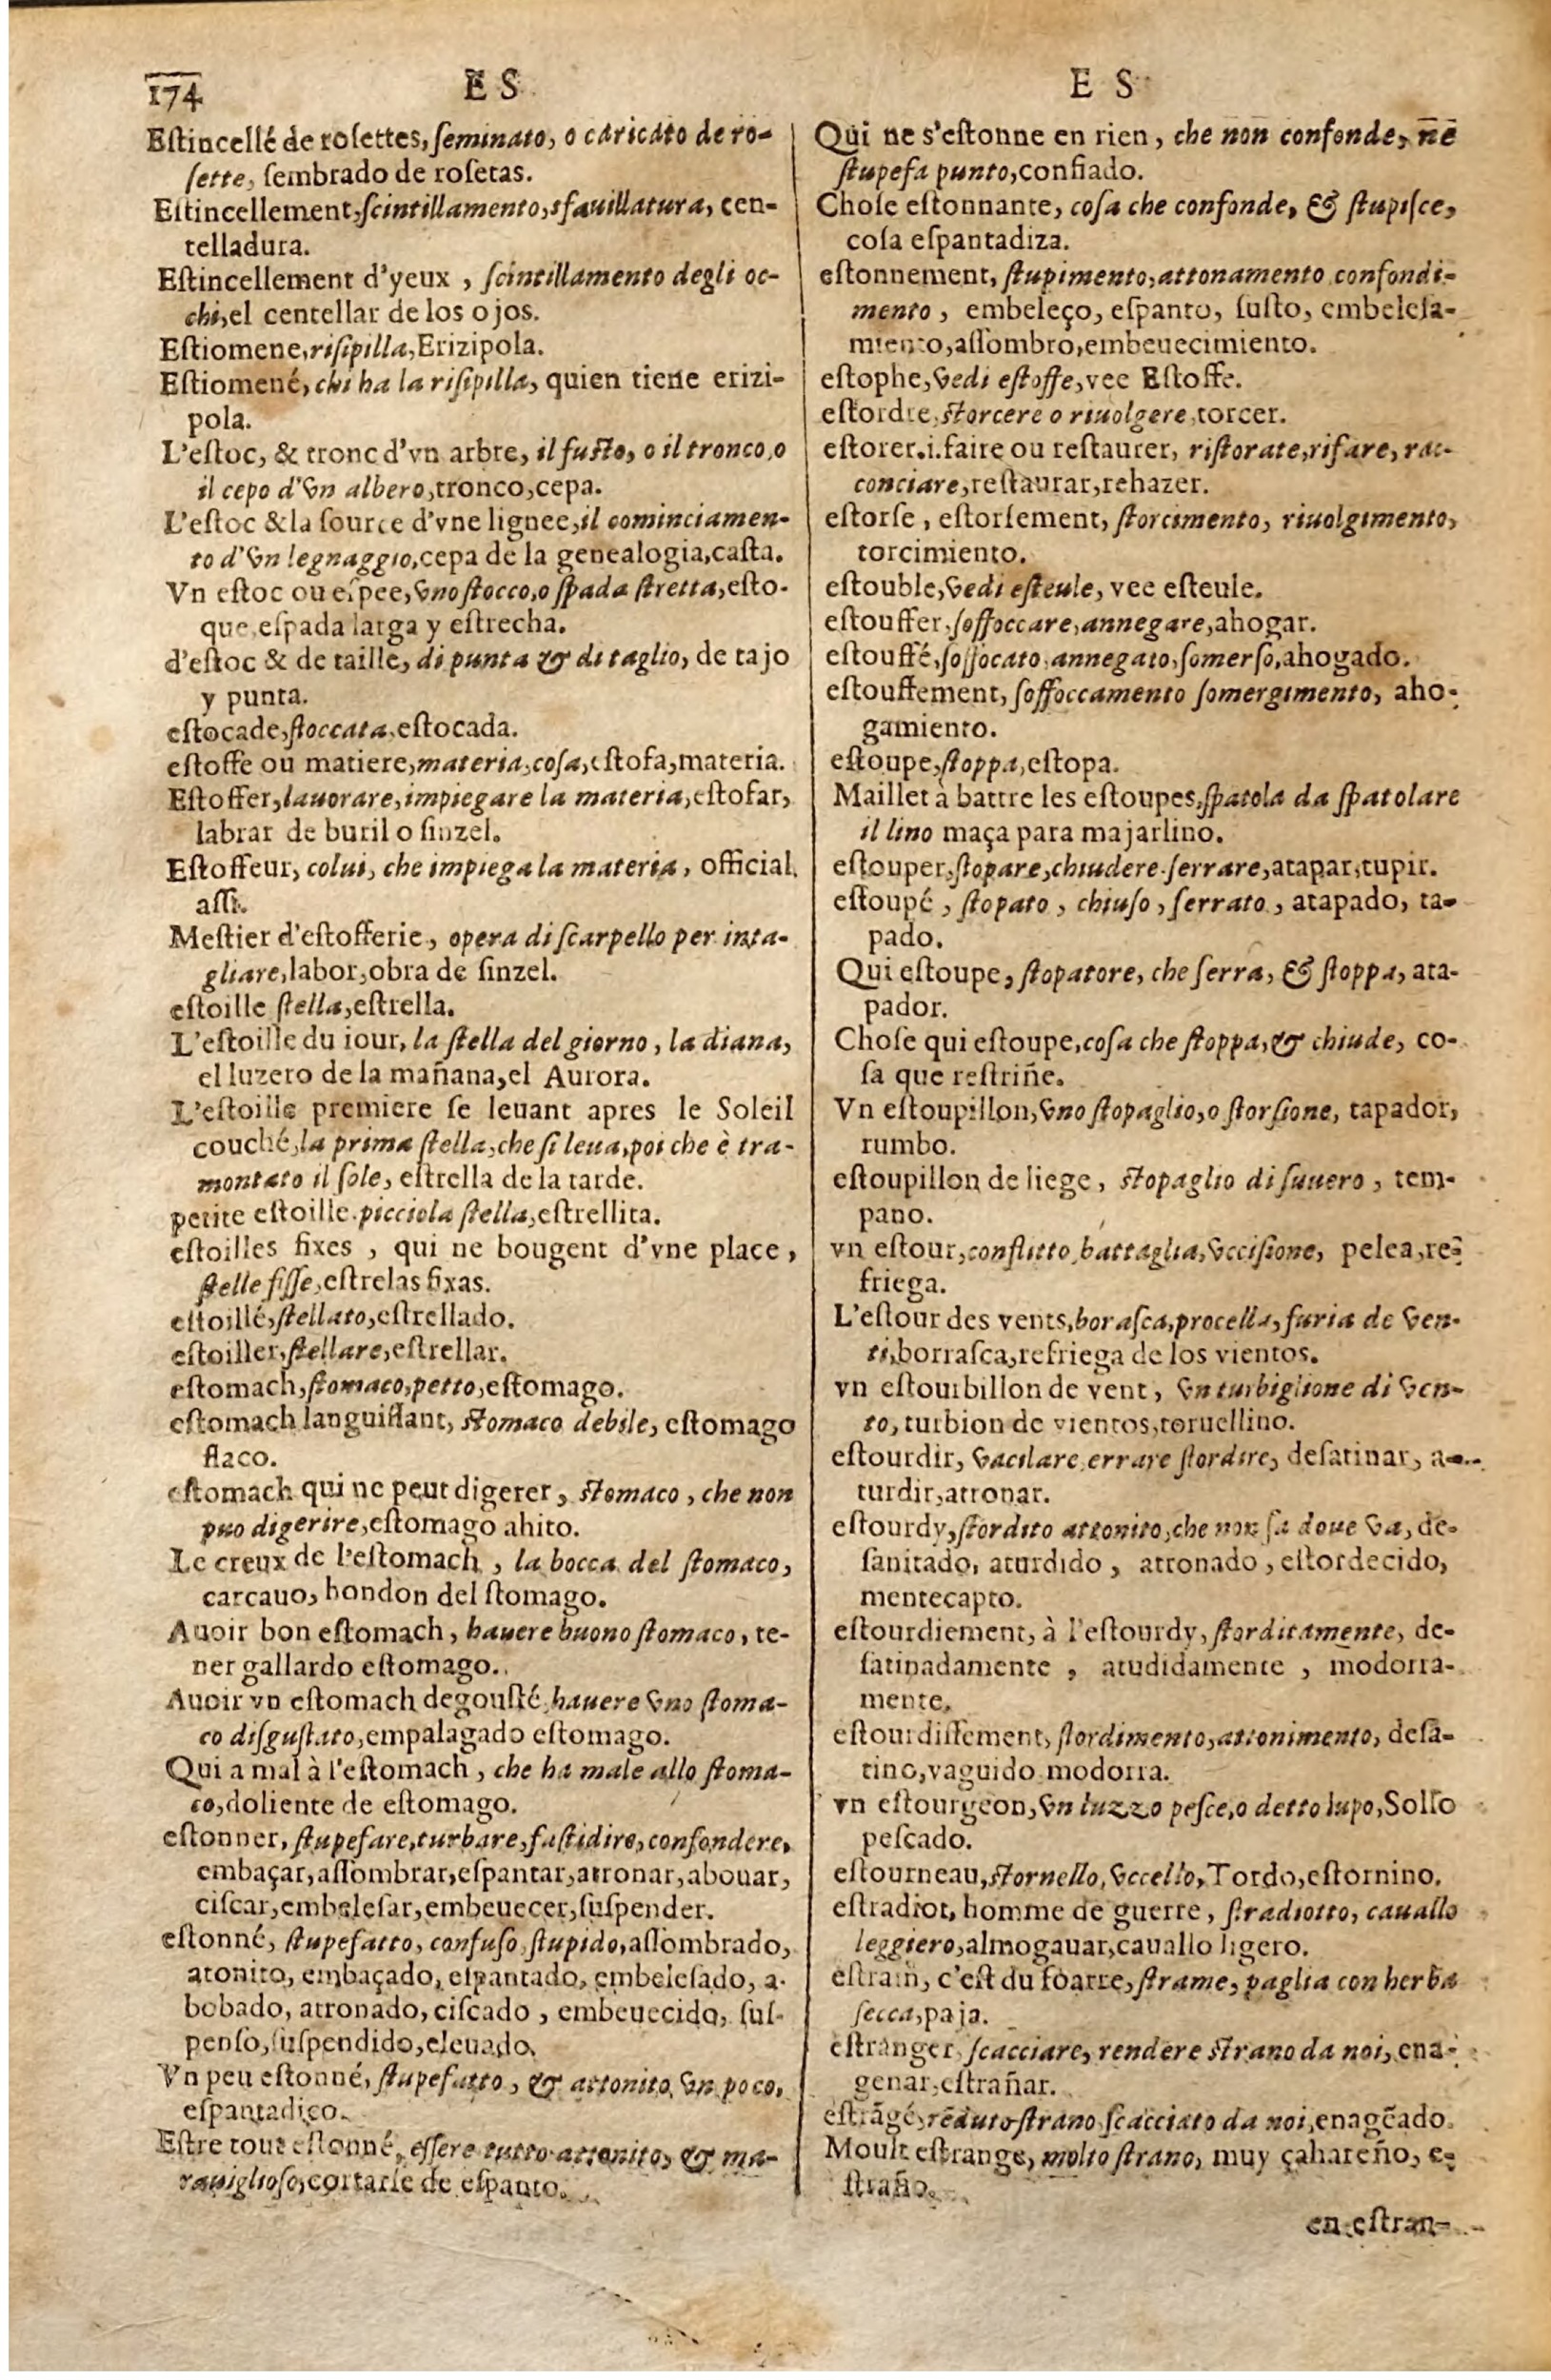 174
E S
Eſtincellé de roſettes, ſeminato, o caricato de ro-
ſette, ſembrado de roſetas.
Eſtincellement, ſcintillamento, sfauillatura, cen-
telladura.
Eſtincellement d'yeux, ſcintillamento degli oc-
chi, el centellar de los ojos.
Eſtiomene, riſipilla, Erizipola.
Eſtiomené, chi ha la riſipilla, quien tiene erizi-
pola.
L'eſtoc, & tronc d'vn arbre, il fuſto, o il tronco, o
il cepo d'vn albero, tronco, cepa.
L'eſtoc & la ſource d'vne lignee, il cominciamen-
to d'vn legnaggio, cepa de la genealogia, caſta.
Vn eſtoc ou eſpee, vno ſtocco, o ſpada ſtretta, eſto-
que, eſpada larga y eſtrecha.
d'eſtoc & de taille, di punta & di taglio, de tajo
y punta.
eſtocade, ſtoccata, eſtocada.
eſtoffe ou matiere, materia, coſa, eſtofa, materia.
Eſtoffer, lauorare, impiegare la materia, eſtofar,
labrar de buril o ſinzel.
Eſtoffeur, colui, che impiega la materia, official
aſſi.
Meſtier d'eſtofferie, opera di ſcarpello per inta-
gliare, labor, obra de ſinzel.
eſtoille ſtella, eſtrella.
L'eſtoille du iour, la ſtella del giorno, la diana,
el luzero de la mañana, el Aurora.
L'eſtoille premiere ſe leuant apres le Soleil
couché, la prima ſtella, che ſi leua, poi che è tra-
montato il ſole, eſtrella de la tarde.
petite eſtoille. picciola ſtella, eſtrellita.
eſtoilles fixes, qui ne bougent d'vne place,
ſtelle fiſſe, eſtrelas fixas.
eſtoillé, ſtellato, eſtrellado.
eſtoiller, ſtellare, eſtrellar.
eſtomach, ſtomaco, petto, eſtomago.
eſtomach languiſſant, ſtomaco debile, eſtomago
flaco.
eſtomach qui ne peut digerer, ſtomaco, che non
puo digerire, eſtomago ahito.
Le creux de l'eſtomach, la bocca del ſtomaco,
carcauo, hondon del ſtomago.
Auoir bon eſtomach, hauere buono ſtomaco, te-
ner gallardo eſtomago.
Auoir vn eſtomach degouſté, hauere vno ſtoma-
co diſguſtato, empalagado eſtomago.
Qui a mal à l'eſtomach, che ha male allo ſtoma-
co, doliente de eſtomago.
eſtonner, ſtupefare, turbare, faſtidire, confondere,
embaçar, aſſombrar, eſpantar, atronar, abouar,
ciſcar, embeleſar, embeuecer, ſuſpender.
eſtonné, ſtupefatto, confuſo, ſtupido, aſſombrado,
atonito, embaçado, eſpantado, embeleſado, a-
bobado, atronado, ciſcado, embeuecido, ſuſ-
penſo, ſuſpendido, eleuado.
Vn peu eſtonné, ſtupefatto, & attonito vn poco,
eſpantadiço.
Eſtre tout eſtonné, eſſere tutto attonito, & ma-
rauiglioſo, cortarſe de eſpanto.
E S
Qui ne s'eſtonne en rien, che non confonde, nē
ſtupefa punto, confiado.
Choſe eſtonnante, coſa che confonde, & ſtupiſce,
coſa eſpantadiza.
eſtonnement, ſtupimento, attonamento confondi-
mento, embeleço, eſpanto, ſuſto, embeleſa-
miento, aſſombro, embeuecimiento.
eſtophe, vedi eſtoffe, vee Eſtoffe.
eſtordre, ſtorcere o riuolgere, torcer.
eſtorer. i. faire ou reſtaurer, riſtorate, rifare, rac-
conciare, reſtaurar, rehazer.
eſtorſe, eſtorſement, ſtorcimento, riuolgimento,
torcimiento.
eſtouble, vedi eſteule, vee eſteule.
eſtouffer, ſoffoccare, annegare, ahogar.
eſtouffé, ſoffocato, annegato, ſomerſo, ahogado.
eſtouffement, ſoffoccamento ſomergimento, aho-
gamiento.
eſtoupe, ſtoppa, eſtopa.
Maillet à battre les eſtoupes, ſpatola da ſpatolare
il lino maça para majarlino.
eſtouper, ſtopare, chiudere. ſerrare, atapar, tupir.
eſtoupé, ſtopato, chiuſo, ſerrato, atapado, ta-
pado.
Qui eſtoupe, ſtopatore, che ſerra, & ſtoppa, ata-
pador.
Choſe qui eſtoupe, coſa che ſtoppa, & chiude, co-
ſa que reſtriñe.
Vn eſtoupillon, vno ſtopaglio, o ſtorſione, tapador,
rumbo.
eſtoupillon de liege, ſtopaglio di ſuuero, tem-
pano.
vn eſtour, conflitto, battaglia, vcciſione, pelea, re-
friega.
L'eſtour des vents, boraſca, procella, furia de ven-
ti, borraſca, refriega de los vientos.
vn eſtourbillon de vent, vn turbiglione di ven-
to, turbion de vientos, toruellino.
eſtourdir, vacilare, errare ſtordire, deſatinar, a-
turdir, atronar.
eſtourdy, ſtordito attonito, che non ſa doue va, de-
ſanitado, aturdido, atronado, eſtordecido,
mentecapto.
eſtourdiement, à l'eſtourdy, ſtorditamente, de-
ſatinadamente, atudidamente, modorra-
mente.
eſtourdiſſement, ſtordimento, attonimento, deſa-
tino, vaguido modorra.
vn eſtourgeon, vn luzzo peſce, o detto lupo, Sollo
peſcado.
eſtourneau, ſtornello, vccello, Tordo, eſtornino.
eſtradiot, homme de guerre, ſtradiotto, cauallo
leggiero, almogauar, cauallo ligero.
eſtrain, c'eſt du foarre, ſtrame, paglia con herba
ſecca, paja.
eſtranger, ſcacciare, rendere ſtrano da noi, ena-
genar, eſtrañar.
eſtrāgé, rēduto ſtrano ſcacciato da noi, enagēado.
Moult eſtrange, molto ſtrano, muy çahareño, e-
ſtraño.
en eſtran-